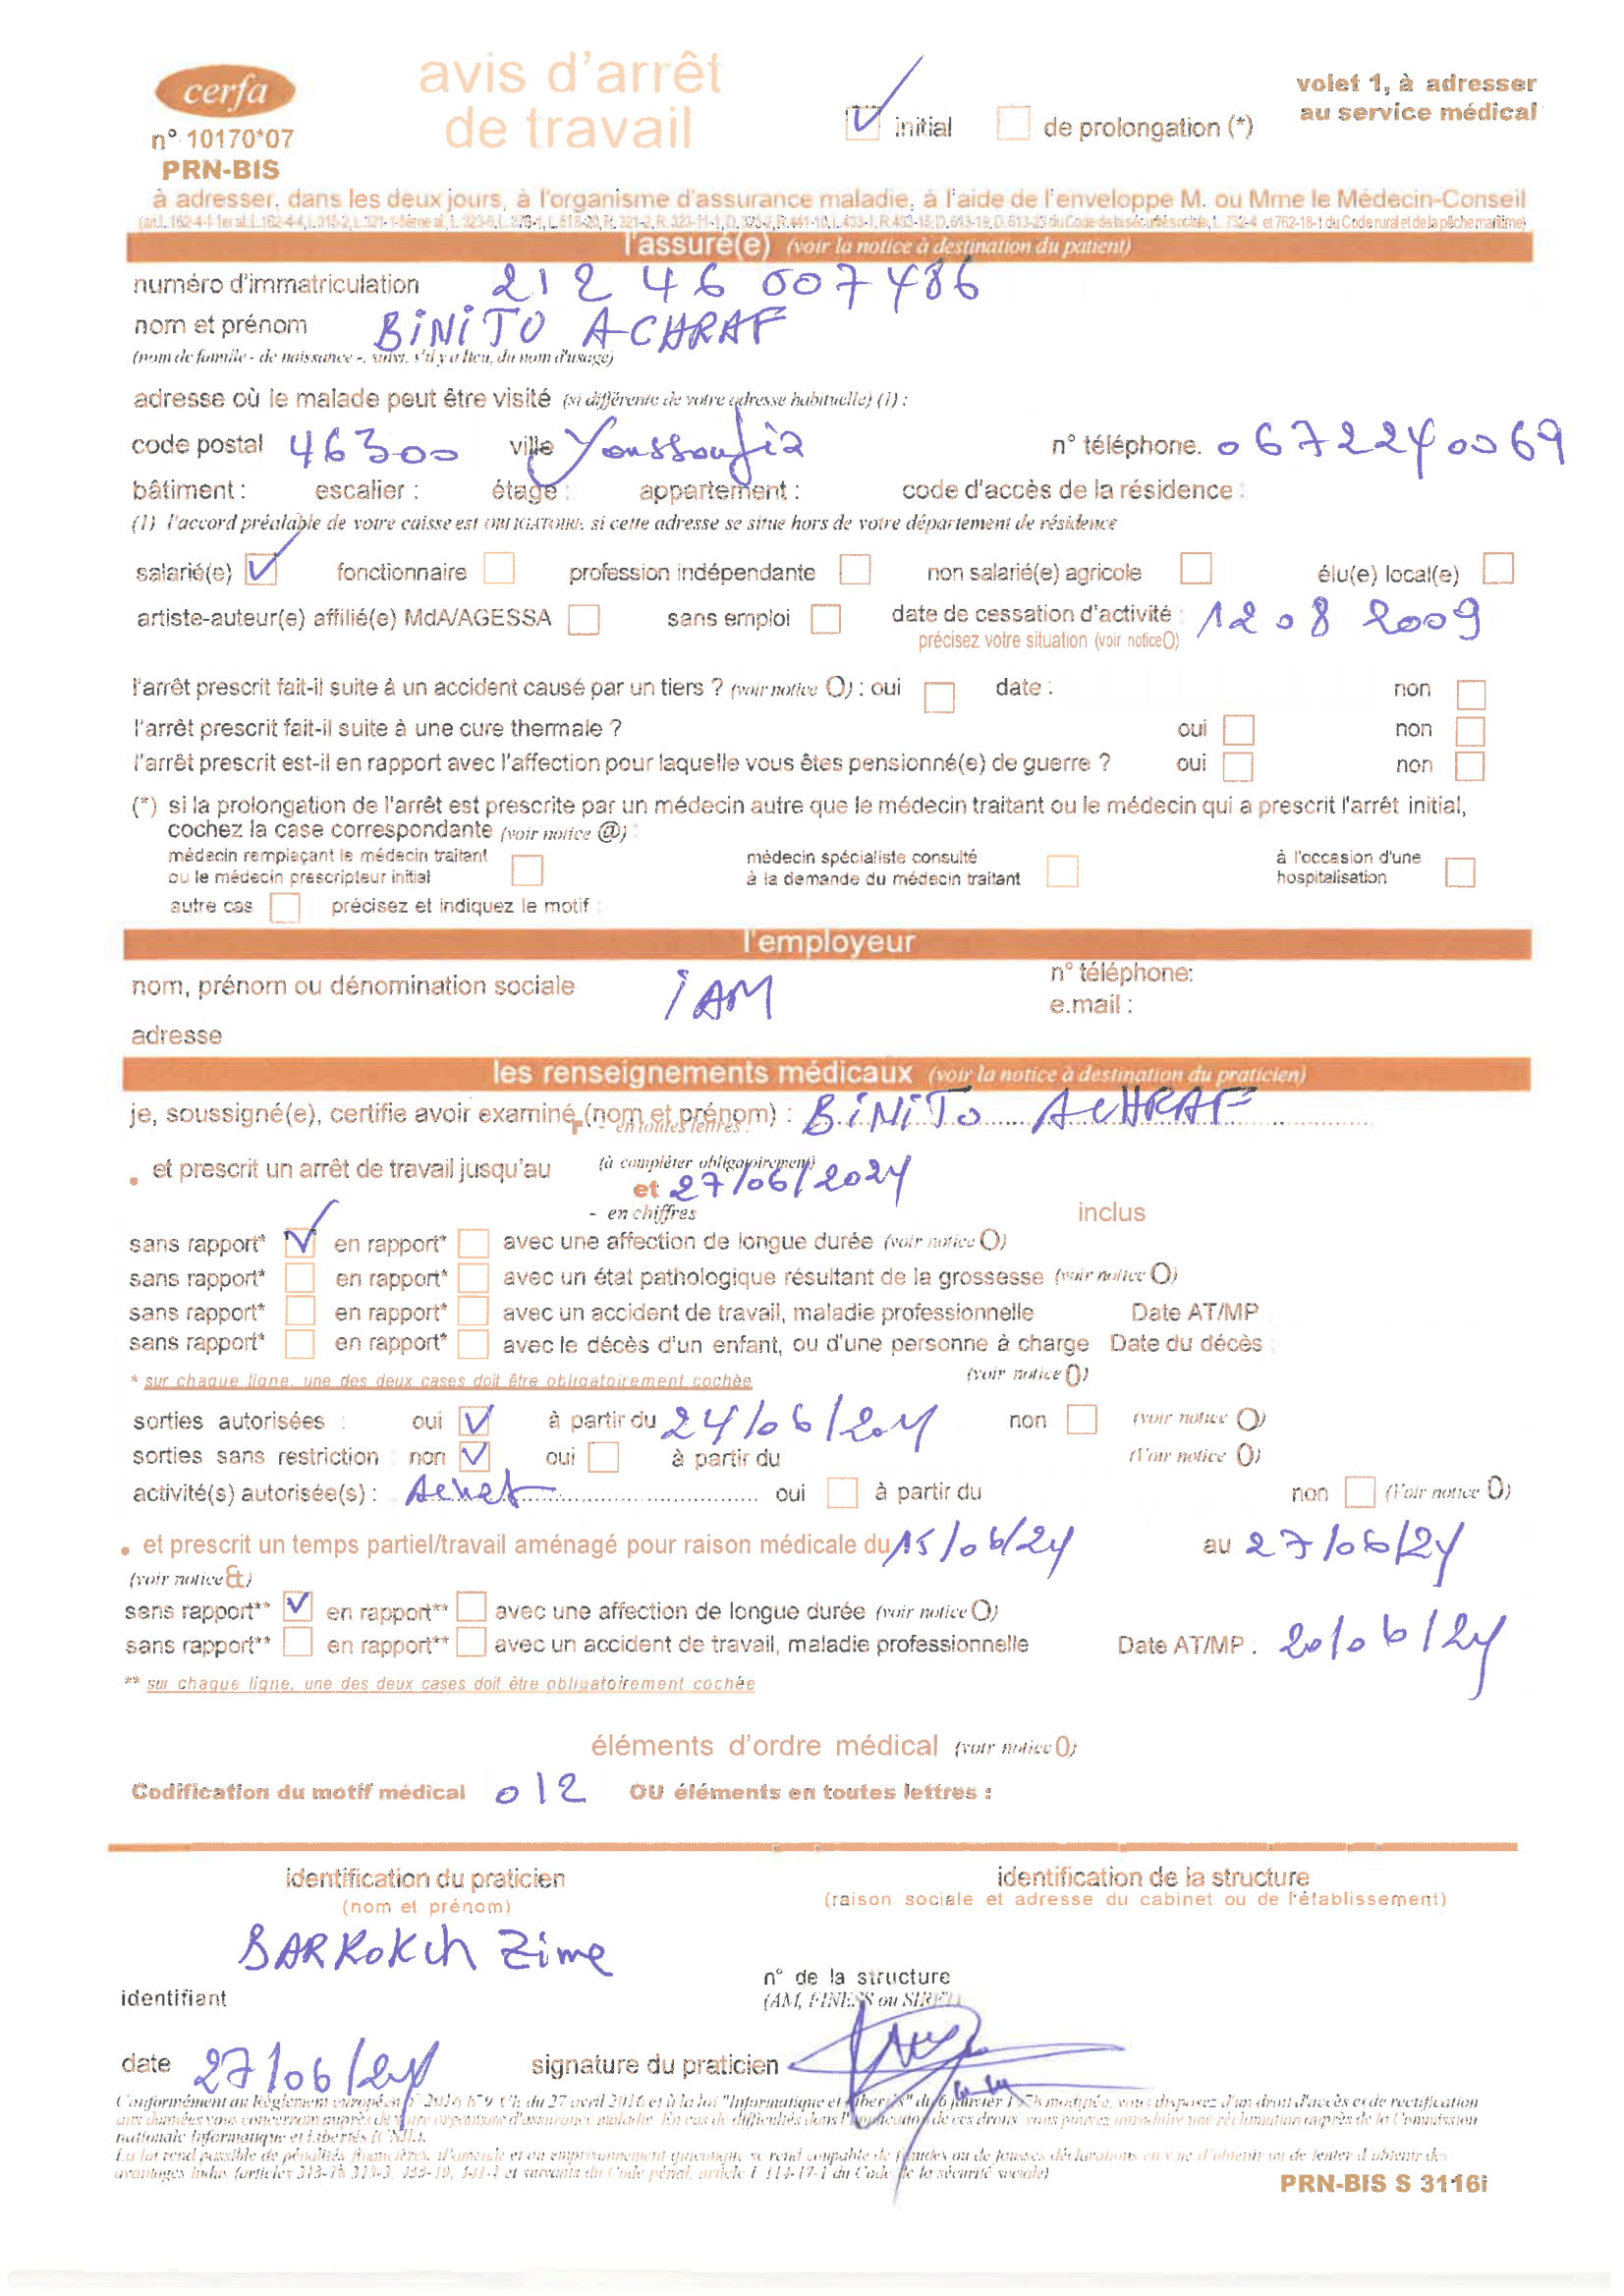 cerfa
n° 10170*07
PRN-BIS
avis d'arrêt
de travail
initial de prolongation (*)
volet 1, à adresser
au service médical
à adresser, dans les deux jours, à l'organisme d'assurance maladie, à l'aide de l'enveloppe M. ou Mme le Médecin-Conseil
l'assuré(e) (voir la notice à destination du patient)
numéro d'immatriculation 212 46 007486
nom et prénom BiNiTO ACHRAF
(nom de famille - de naissance -, suivi, s'il y a lieu, du nom d'usage)
adresse où le malade peut être visité (si différente de votre adresse habituelle) (1) :
code postal 46300 ville Youssoufia n° téléphone. 0672240069
bâtiment : escalier : étage : appartement : code d'accès de la résidence :
(1) l'accord préalable de votre caisse est OBLIGATOIRE, si cette adresse se situe hors de votre département de résidence
salarié(e) fonctionnaire profession indépendante non salarié(e) agricole élu(e) local(e)
artiste-auteur(e) affilié(e) MdA/AGESSA sans emploi date de cessation d'activité : 12 08 2009
précisez votre situation (voir notice())
l'arrêt prescrit fait-il suite à un accident causé par un tiers ? (voir notice O) : oui date : non
l'arrêt prescrit fait-il suite à une cure thermale ? oui non
l'arrêt prescrit est-il en rapport avec l'affection pour laquelle vous êtes pensionné(e) de guerre ? oui non
(*) si la prolongation de l'arrêt est prescrite par un médecin autre que le médecin traitant ou le médecin qui a prescrit l'arrêt initial,
cochez la case correspondante (voir notice @) :
médecin remplaçant le médecin traitant médecin spécialiste consulté à l'occasion d'une
ou le médecin prescripteur initial à la demande du médecin traitant hospitalisation
autre cas précisez et indiquez le motif :
l'employeur
nom, prénom ou dénomination sociale iAM n° téléphone:
e.mail :
adresse
les renseignements médicaux (voir la notice à destination du praticien)
je, soussigné(e), certifie avoir examiné (nom et prénom) : BiNiTo ACHRAF
- en toutes lettres :
• et prescrit un arrêt de travail jusqu'au (à compléter obligatoirement)
et 27/06/2024
- en chiffres inclus
sans rapport* en rapport* avec une affection de longue durée (voir notice O)
sans rapport* en rapport* avec un état pathologique résultant de la grossesse (voir notice O)
sans rapport* en rapport* avec un accident de travail, maladie professionnelle Date AT/MP
sans rapport* en rapport* avec le décès d'un enfant, ou d'une personne à charge Date du décès :
* sur chaque ligne, une des deux cases doit être obligatoirement cochée (voir notice ())
sorties autorisées : oui à partir du 24/06/2024 non (voir notice O)
sorties sans restriction : non oui à partir du (Voir notice ())
activité(s) autorisée(s) : Achat oui à partir du non (Voir notice O)
• et prescrit un temps partiel/travail aménagé pour raison médicale du 15/06/24 au 27/06/24
(voir notice &)
sans rapport** en rapport** avec une affection de longue durée (voir notice O)
sans rapport** en rapport** avec un accident de travail, maladie professionnelle Date AT/MP : 20/06/24
** sur chaque ligne, une des deux cases doit être obligatoirement cochée
éléments d'ordre médical (voir notice ())
Codification du motif médical 012 OU éléments en toutes lettres :
identification du praticien
(nom et prénom)
identification de la structure
(raison sociale et adresse du cabinet ou de l'établissement)
BARKOKCH Zime
identifiant
n° de la structure
(AM, FINESS ou SIRET)
date 27/06/24 signature du praticien
Conformément au Règlement européen n° 2016/679/UE du 27 avril 2016 et à la loi "Informatique et Libertés" du 6 janvier 1978 modifiée, vous disposez d'un droit d'accès et de rectification
aux données vous concernant auprès de votre organisme d'assurance maladie. En cas de difficultés dans l'application de ces droits, vous pouvez introduire une réclamation auprès de la Commission
nationale Informatique et Libertés (CNIL).
La loi rend passible de pénalités financières, d'amende et ou emprisonnement quiconque se rend coupable de fraudes ou de fausses déclarations en vue d'obtenir ou de tenter d'obtenir des
avantages indus (articles 313-1à 313-3, 433-19, 441-1 et suivants du Code pénal, article L 114-17-1 du Code de la sécurité sociale)
PRN-BIS S 3116i